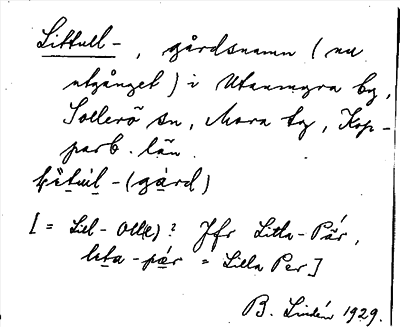 Littull- , gårdsnamn (nu
utgånget) i Utanmyra by,
Sollerö sn, Mora tg, Kop-
parb. län.
litul-(gård)
[= Lill-Olle)? Jfr Litla-Pär,
lita-pær = Lilla Per]
B. Lindén 1929.